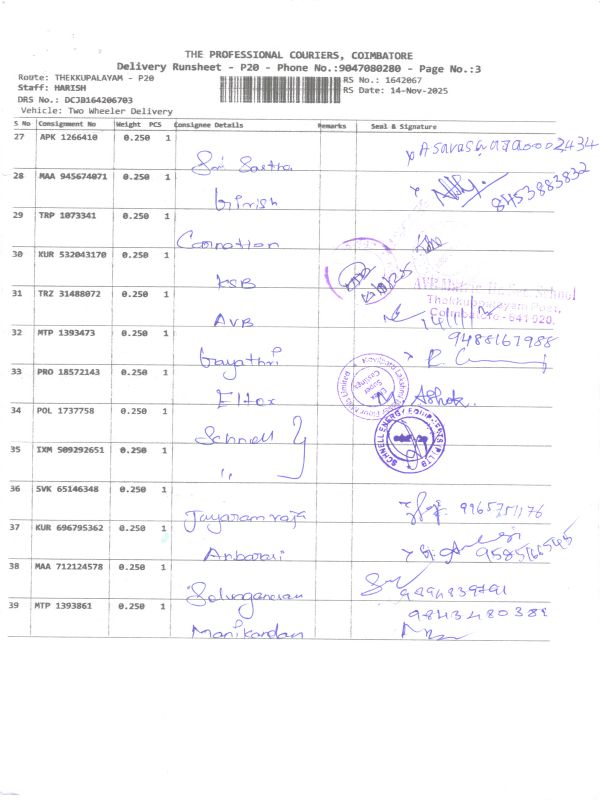 THE PROFESSIONAL COURIERS, COIMBATORE
Delivery Runsheet - P20 - Phone No.:9047080280 - Page No.:3
Route: THEKKUPALAYAM - P20
Staff: HARISH
DRS No.: DCJB164206703
Vehicle: Two Wheeler Delivery
RS No.: 1642067
RS Date: 14-Nov-2025
S No Consignment No Weight PCS Consignee Details Remarks Seal & Signature
27 APK 1266410 0.250 1 Sri Sastha
28 MAA 945674071 0.250 1 Girish 8453883832
29 TRP 1073341 0.250 1 Coronation
30 KUR 532043170 0.250 1 KSB
31 TRZ 31488072 0.250 1 AVB
Thekkupalayam Post,
Coimbatore - 641 020.
32 MTP 1393473 0.250 1 Gayathri 9488167988
33 PRO 18572143 0.250 1 Eltex Ashok
34 POL 1737758 0.250 1 Schnell
SCHNELL ENERGY EQUIPMENTS (P) LTD
35 IXM 509292651 0.250 1 ,,
36 SVK 65146348 0.250 1 Jayaram raja 9965751176
37 KUR 696795362 0.250 1 Anbarasi
38 MAA 712124578 0.250 1
39 MTP 1393861 0.250 1 Manikandan 9843480389